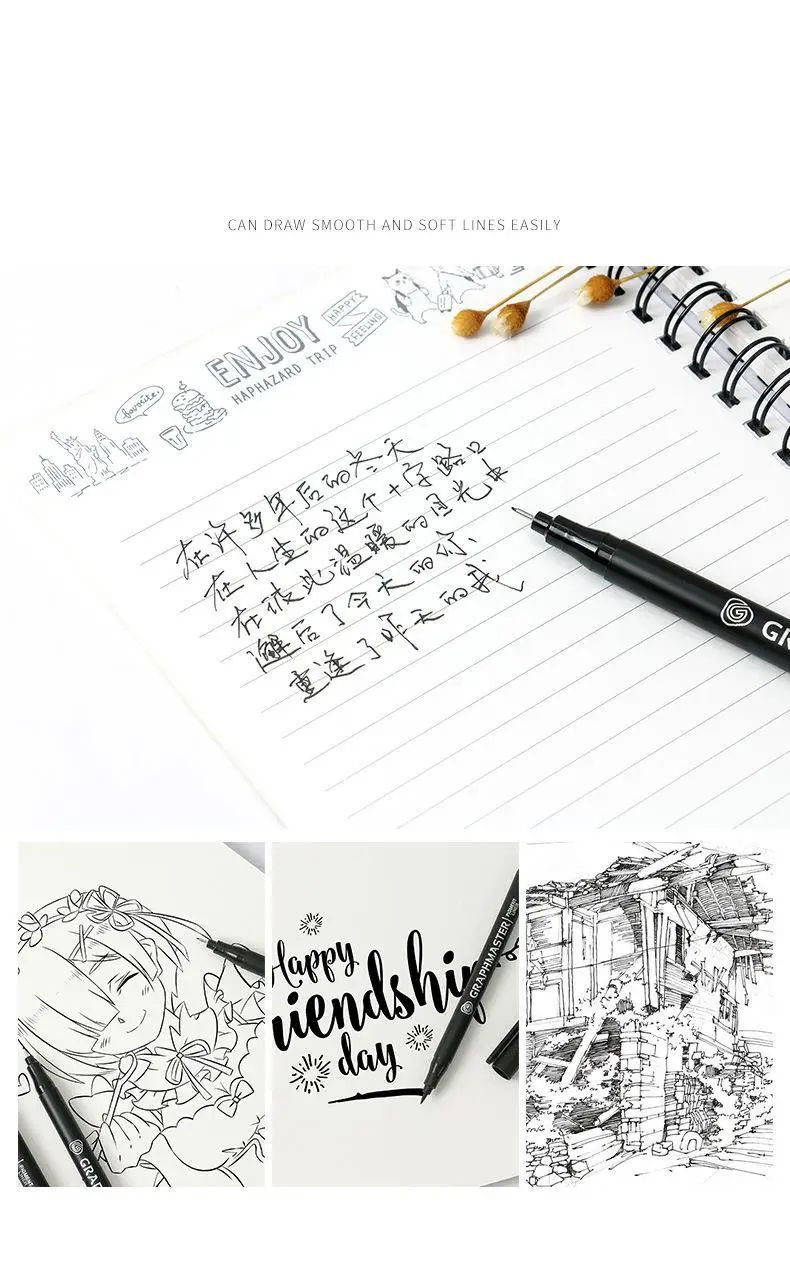 CAN DRAW SMOOTH AND SOFT LINES EASILY
HAPPY
FEELING
ENJOY
HAPHAZARD TRIP
favorite.
在许多年后的冬天
在人生的这个十字路口
在彼此温暖的目光中
邂后了今天的你、
重逢了昨天的我
G
Happy
riendship
day
GRAPHMASTER
PIGMENT
LINER
GRAP